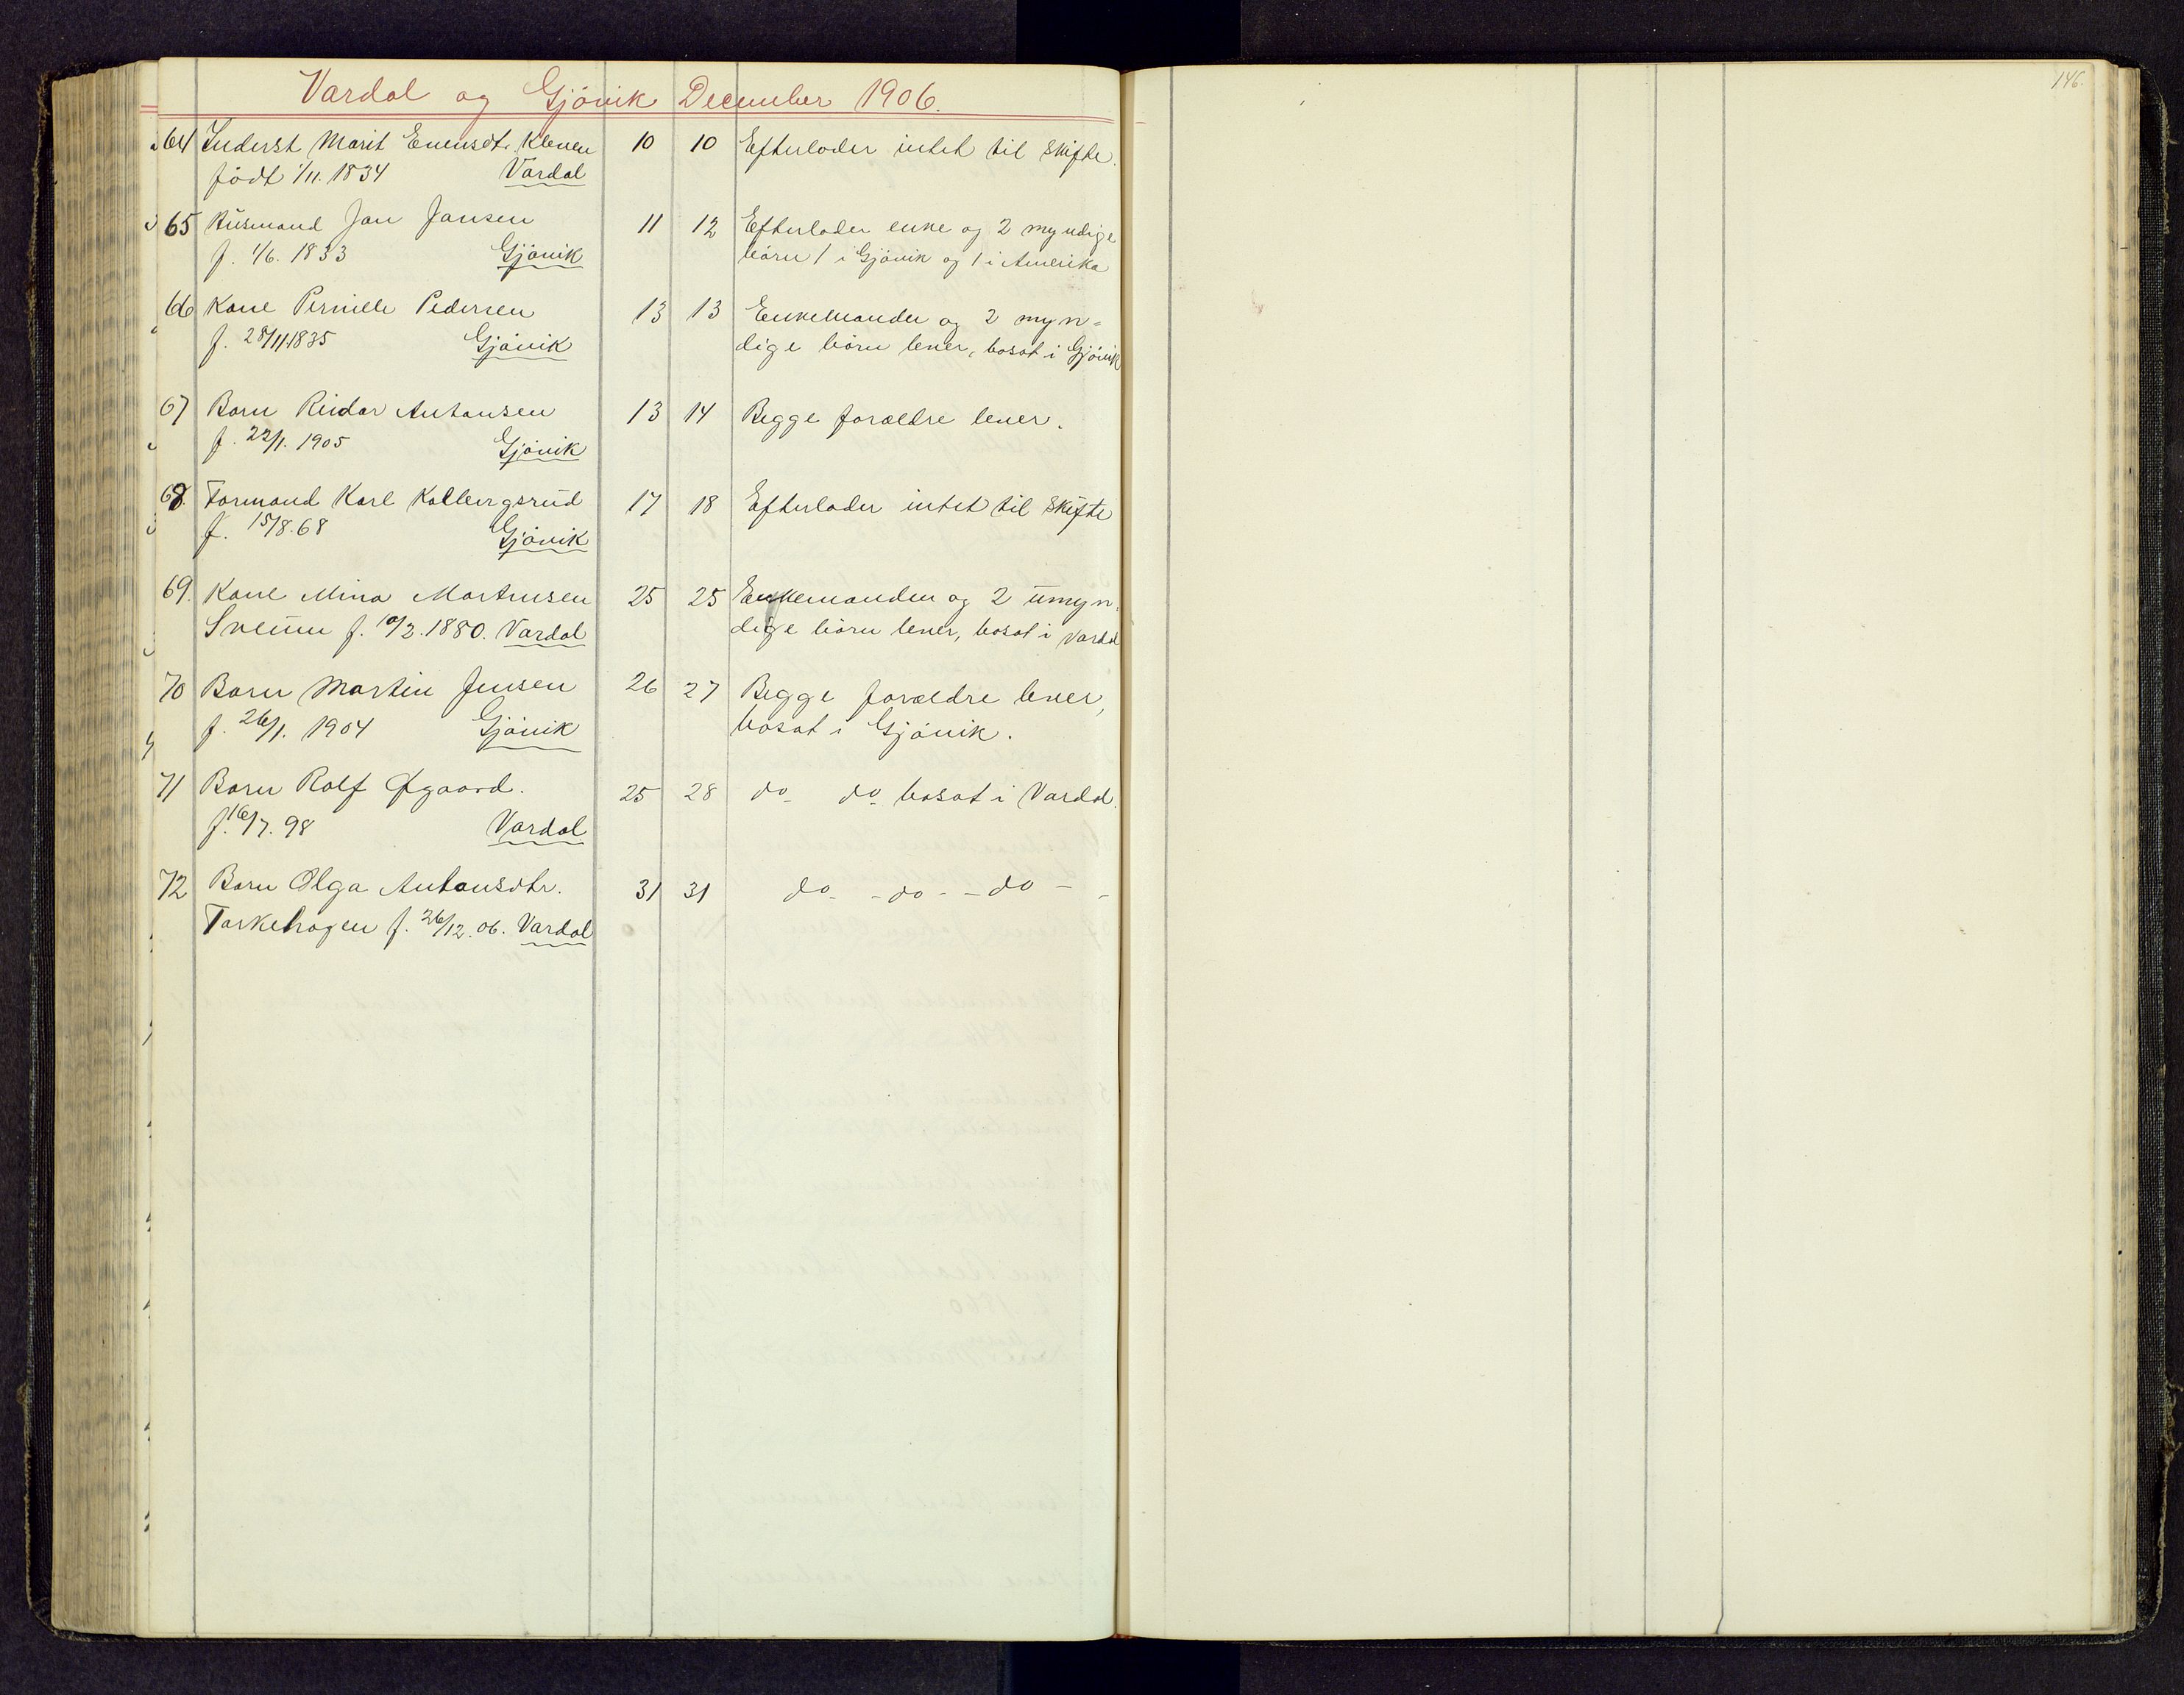 146.
Vardal og Gjövik December 1906.
64 Inderst Marit Evensdt. Kleven 10 10 Efterlader intet til skifte.
födt 1/11. 1834 Vardal
65 Husmand Jan Jansen 11 12 Efterlader enke og 2 myndige
f. 1/6. 1833 Gjövik börn 1 i Gjövik og 1 i Amerika
66 Kone Pernille Pedersen 13 13 Enkemanden og 2 myn=
f. 28/11 1835 Gjövik dige börn lever, bosat i Gjövik
67 Barn Reidar Antonsen 13 14 Begge forældre lever.
f. 22/1. 1905 Gjövik
68. Formand Karl Kolbergsrud 17 18 Efterlader intet til skifte
f. 15/8. 68 Gjövik
69. Kone Mina Martinsen 25 25 Enkemanden og 2 umyn=
Sveum f. 10/2. 1880. Vardal dige börn lever, bosat i Vardal
70 Barn Martin Jensen 26 27 Begge forældre lever,
f. 26/1. 1904 Gjövik bosat i Gjövik.
71 Barn Rolf Øgaard. 25 28 do do bosat i Vardal.
f. 16/7. 98 Vardal
72 Barn Olga Antonsdtr. 31 31 do - do - - do -
Torkehagen f. 26/12. 06. Vardal